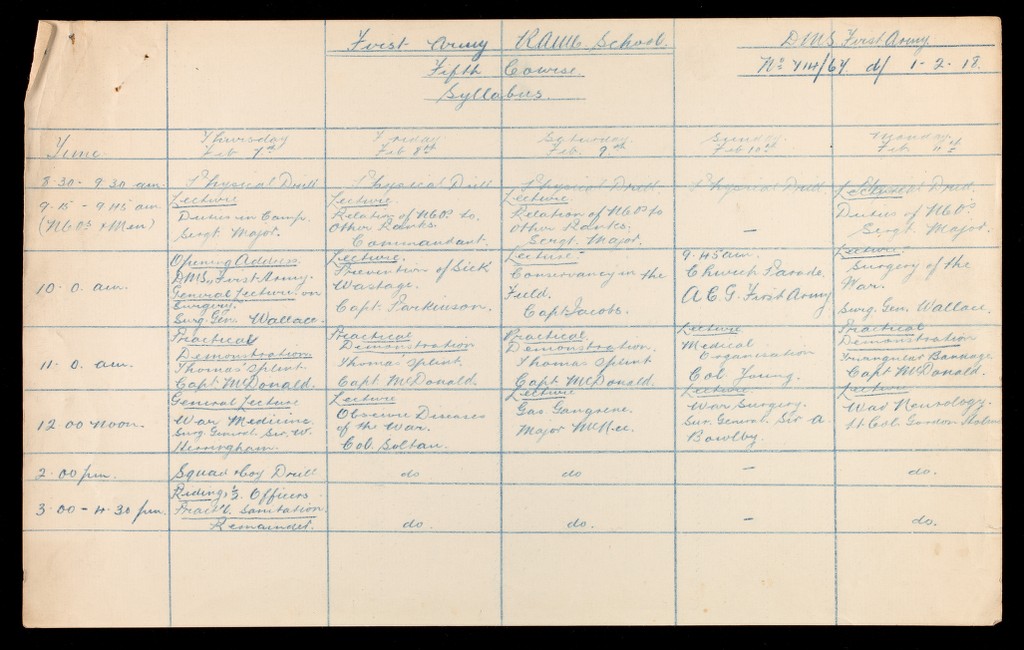 First Army RAMC School.
Fifth Course.
Syllabus.
DMS First Army.
No 714/67. d/ 1-2-18.
Time.
Thursday
Feb 7th
Friday
Feb 8th
Saturday
Feb. 9th
Sunday.
Feb 10th
Monday.
Feb 11th
8.30 - 9.30 am.
Physical Drill
Physical Drill
Physical Drill.
Physical Drill
Physical Drill.
9.15 - 9.45 am
(NCOs & Men)
Lecture
Duties in Camp.
Sergt. Major.
Lecture.
Relation of NCOs to
other Ranks.
Commandant.
Lecture.
Relation of NCOs to
other Ranks.
Sergt. Major.
-
Lecture
Duties of NCOs.
Sergt. Major.
10. 0. am.
Opening Address
DMS, First Army.
General Lecture on
Surgery.
Surg. Gen. Wallace.
Lecture.
Prevention of Sick
Wastage.
Capt. Parkinson.
Lecture-
Conservancy in the
Field.
Capt Jacobs.
9.45 am.
Church Parade.
A.C.G. First Army
Lecture.
Surgery of the
War.
Surg. Gen. Wallace.
11. 0. am.
Practical
Demonstration
Thomas' Splint.
Capt. McDonald.
Practical
Demonstration
Thomas' Splint
Capt. McDonald.
Practical
Demonstration.
Thomas Splint.
Capt. McDonald.
Lecture
Medical
Organisation
Col. Young.
Practical
Demonstration
Triangular Bandage.
Capt McDonald.
12 00 noon.
General Lecture
War Medicine.
Surg. General. Sir. W.
Herringham.
Lecture
Obscure Diseases
of the War.
Col. Soltau.
Lecture
Gas Gangrene.
Major McNee.
Lecture
War Surgery.
Sur. General. Sir A.
Bowlby.
Lecture
War Neurology.
Lt Col. Gordon Holmes
2.00 pm.
Squad & Coy Drill
do
do
-
do.
3.00 - 4.30 pm.
Riding ½ Officers
Pract'l. Sanitation.
Remainder.
do.
do.
-
do.